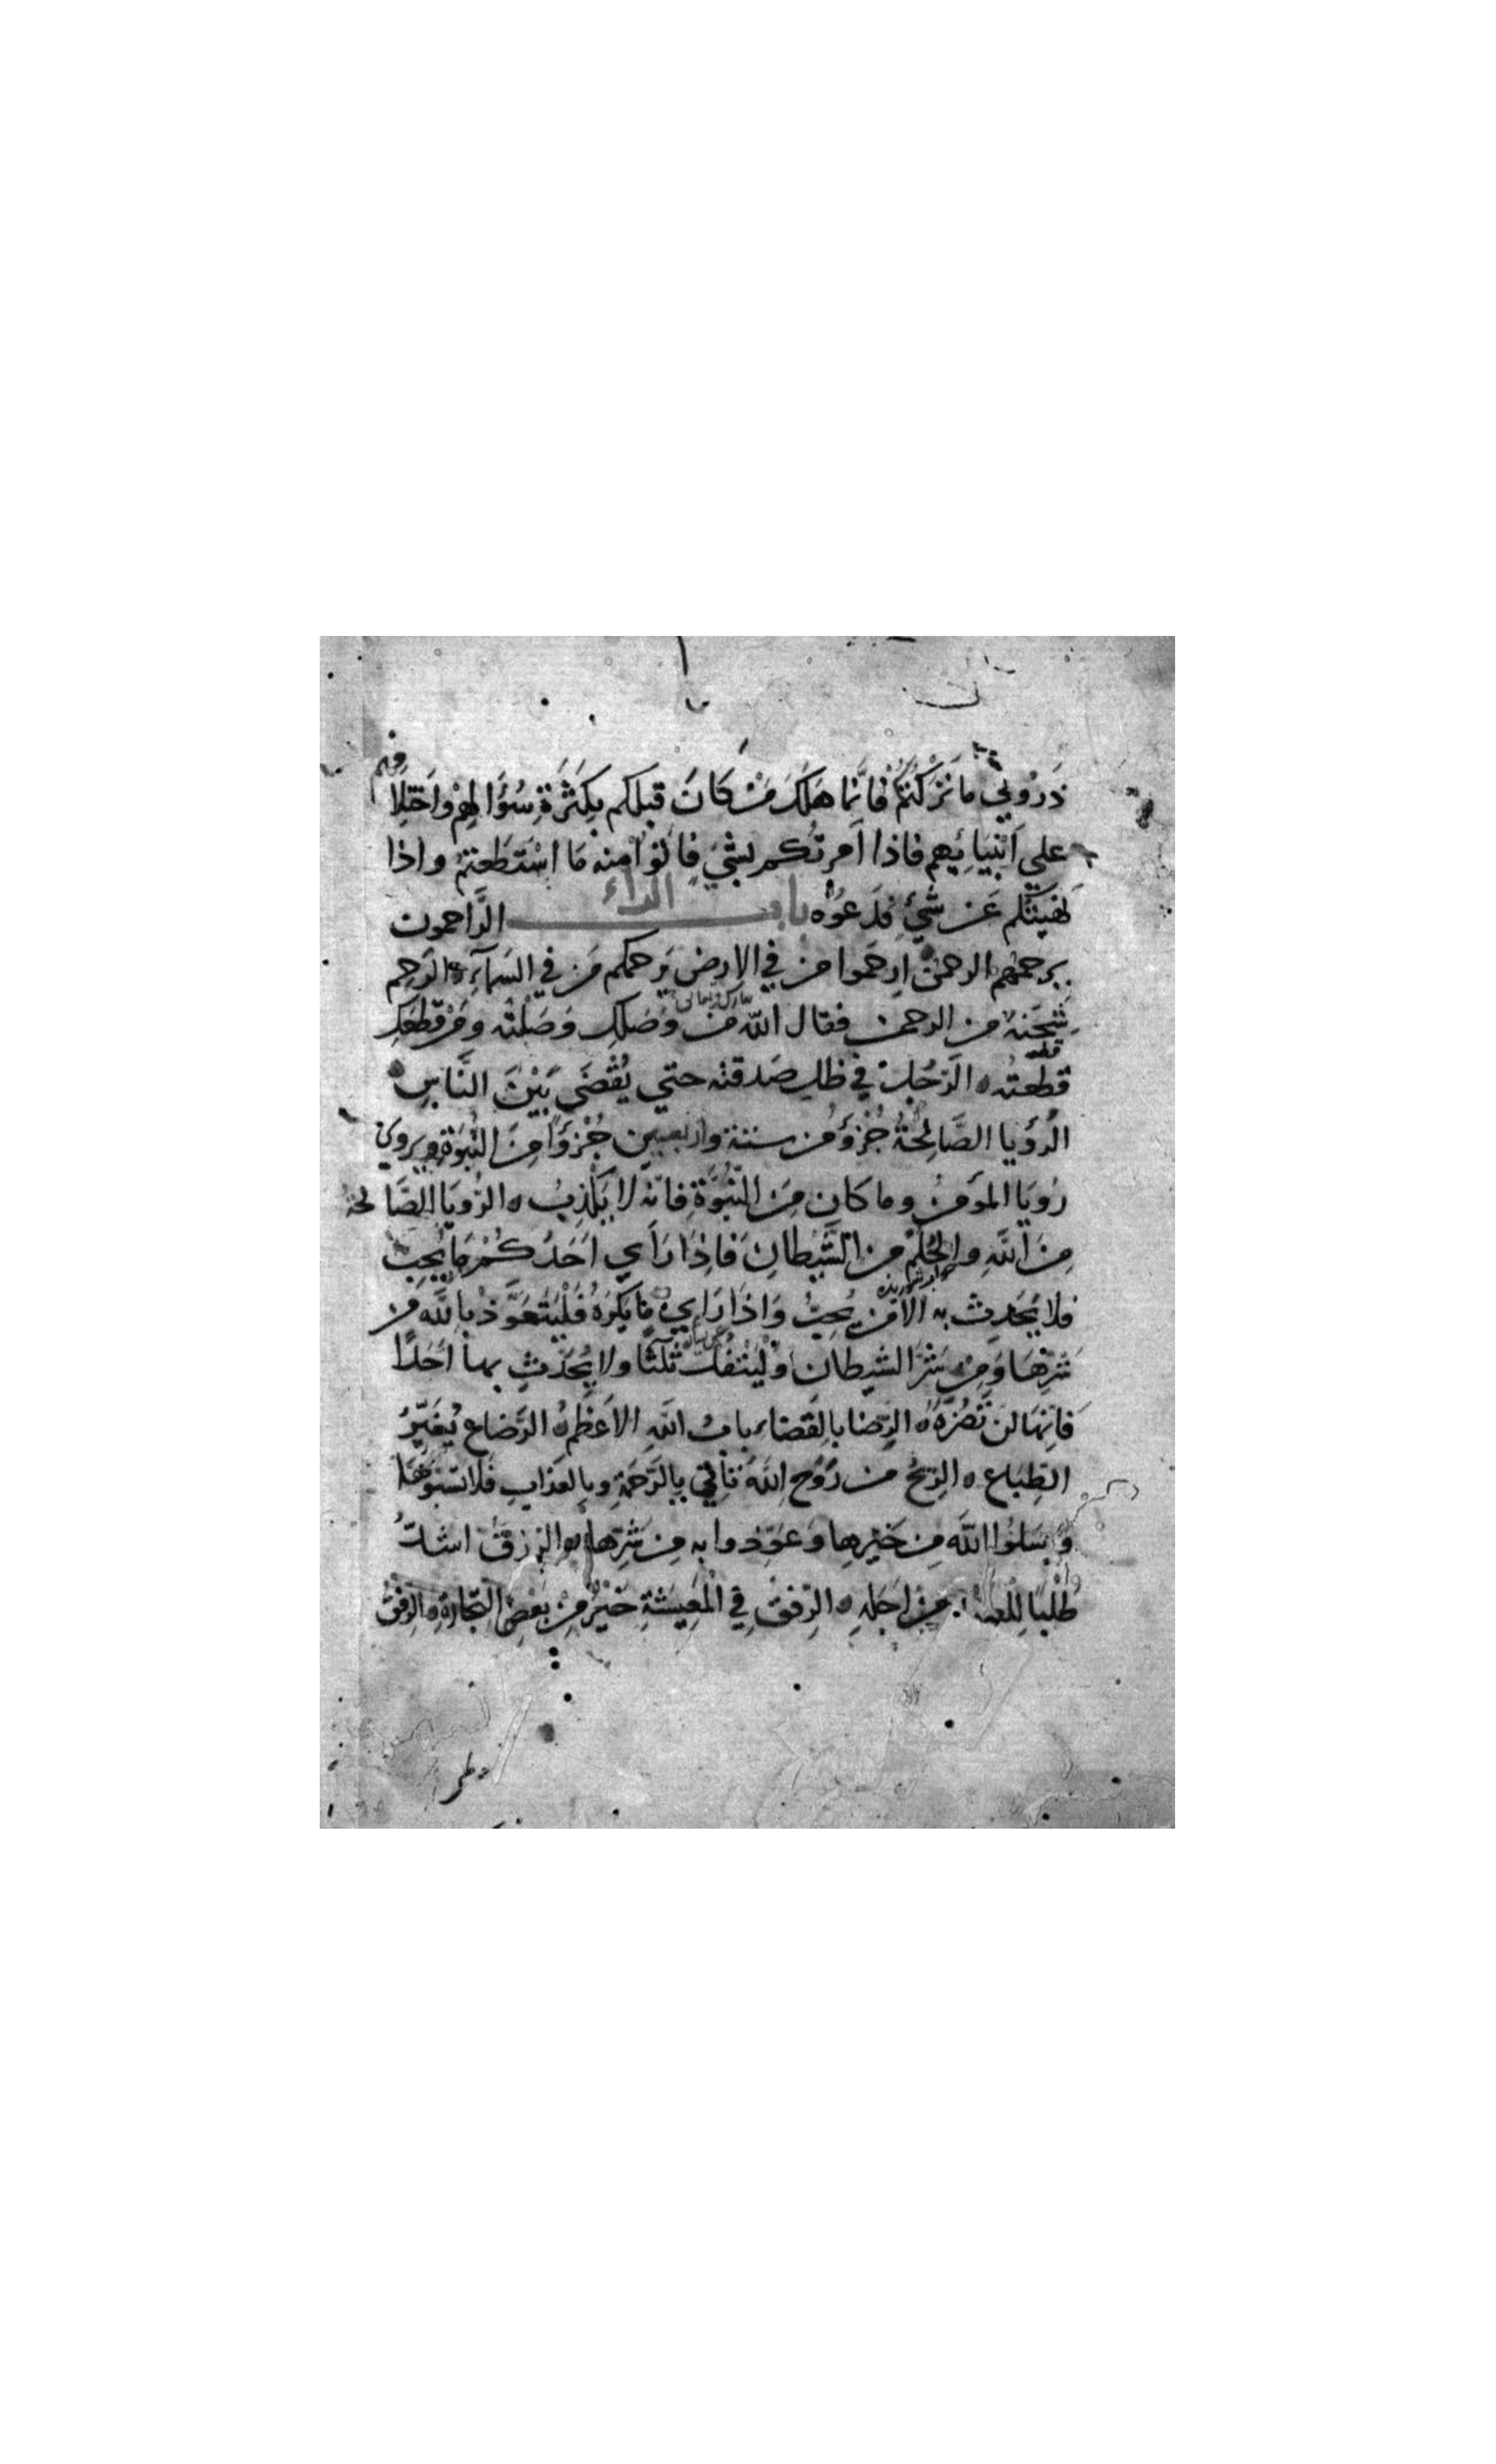 ذَرُوْنِي مَا تَرَكْتُكُمْ فَاِنَّمَا هَلَكَ مَنْ كَانَ قبلكم بِكَثْرَةِ سُؤَالِهِمْ وَاخْتِلَافِهِم
علي اَنْبِيَائِهِم فاذا اَمرتُكم بشيءٍ فاتوا مِنه مَا اسْتَطَعْتُمْ واذا
نَهَيْتُكُم عَن شَيْءٍ فَدَعُوْه باب الراء الرَّاحمون
يرحمهم الرحمن اِرحَموا من في الارض يَرحمكم مَن في السَمآءِ ه الرَحِم
شِجْنَة من الرحمن فقال اللّٰه من وَصَلكِ وَصَلْتُه وَمَن قطعكِ
قطعتُه ه الرَجُل في ظل صَدقته حتي يُقْضَي بَيْنَ النَّاسِ ه
الرُؤيا الصَّالِحَةُ جُزْؤٌ من ستة واربعين جُزْؤًا مِنَ النُبُوَّةِ ويروي
رُويَا المؤمن وما كان مِنَ النُّبُوَّةِ فانه لا يَكْذِبُ ه الرُويَا الصَّالحة
مِنَ اللّٰهِ والحُلمُ من الشَّيْطانِ فَاِذَا رَاَي اَحَدُكُمْ مَا يُحِبّ
فلا يُحَدِث به الا من يُحِبُّ وَاذَا رَاَي مَا يَكْرَهُ فَلْيَتَعَوَّذْ بِاللّٰه من
شَرِّهَا وَمِنْ شَرِّ الشيطان وَلْيَتْفُلْ ثَلٰثًا ولا يُحَدِّث بها اَحَدًا
فَاِنَّهَا لَنْ تَضُرَّهُ ه الرِّضا بالقَضاء باب اللّٰهِ الاَعْظَم ه الرَّضاع يُغَيِّرُ
الطِبَاع ه الرِيحُ من رَوْحِ اللّٰهِ تَأتي بِالرَّحمَةِ وبالعَذَابِ فَلَا تَسُبُّوهَا
وَسَلُوا اللّٰهَ مِن خَيْرِها وَعَوِّذوا به مِن شَرِّها ه الرِزقُ اشدُّ
طَلَبًا لِلعَبْدِ مِنْ اَجَلِهِ ه الرِّفقُ فِي الْمَعِيشَةِ خَيْرٌ مِنْ بَعضِ التِّجَارَةِ ه الرِفقُ